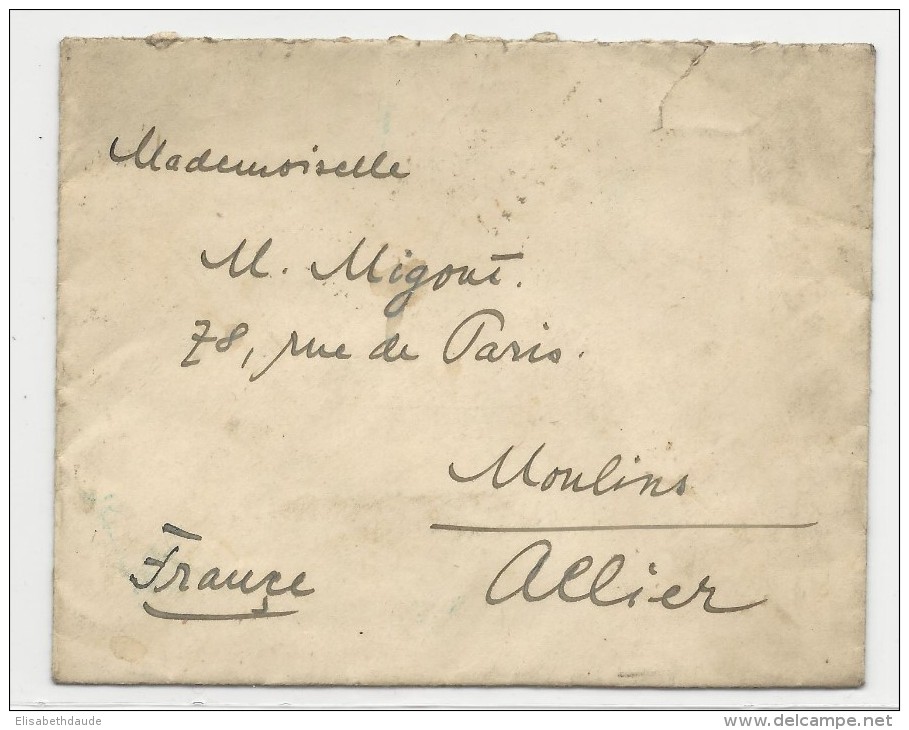 Mademoiselle
M. Migout.
78, rue de Paris.
Moulins
Allier
Françe
Elisabethdaude
www.delcampe.net